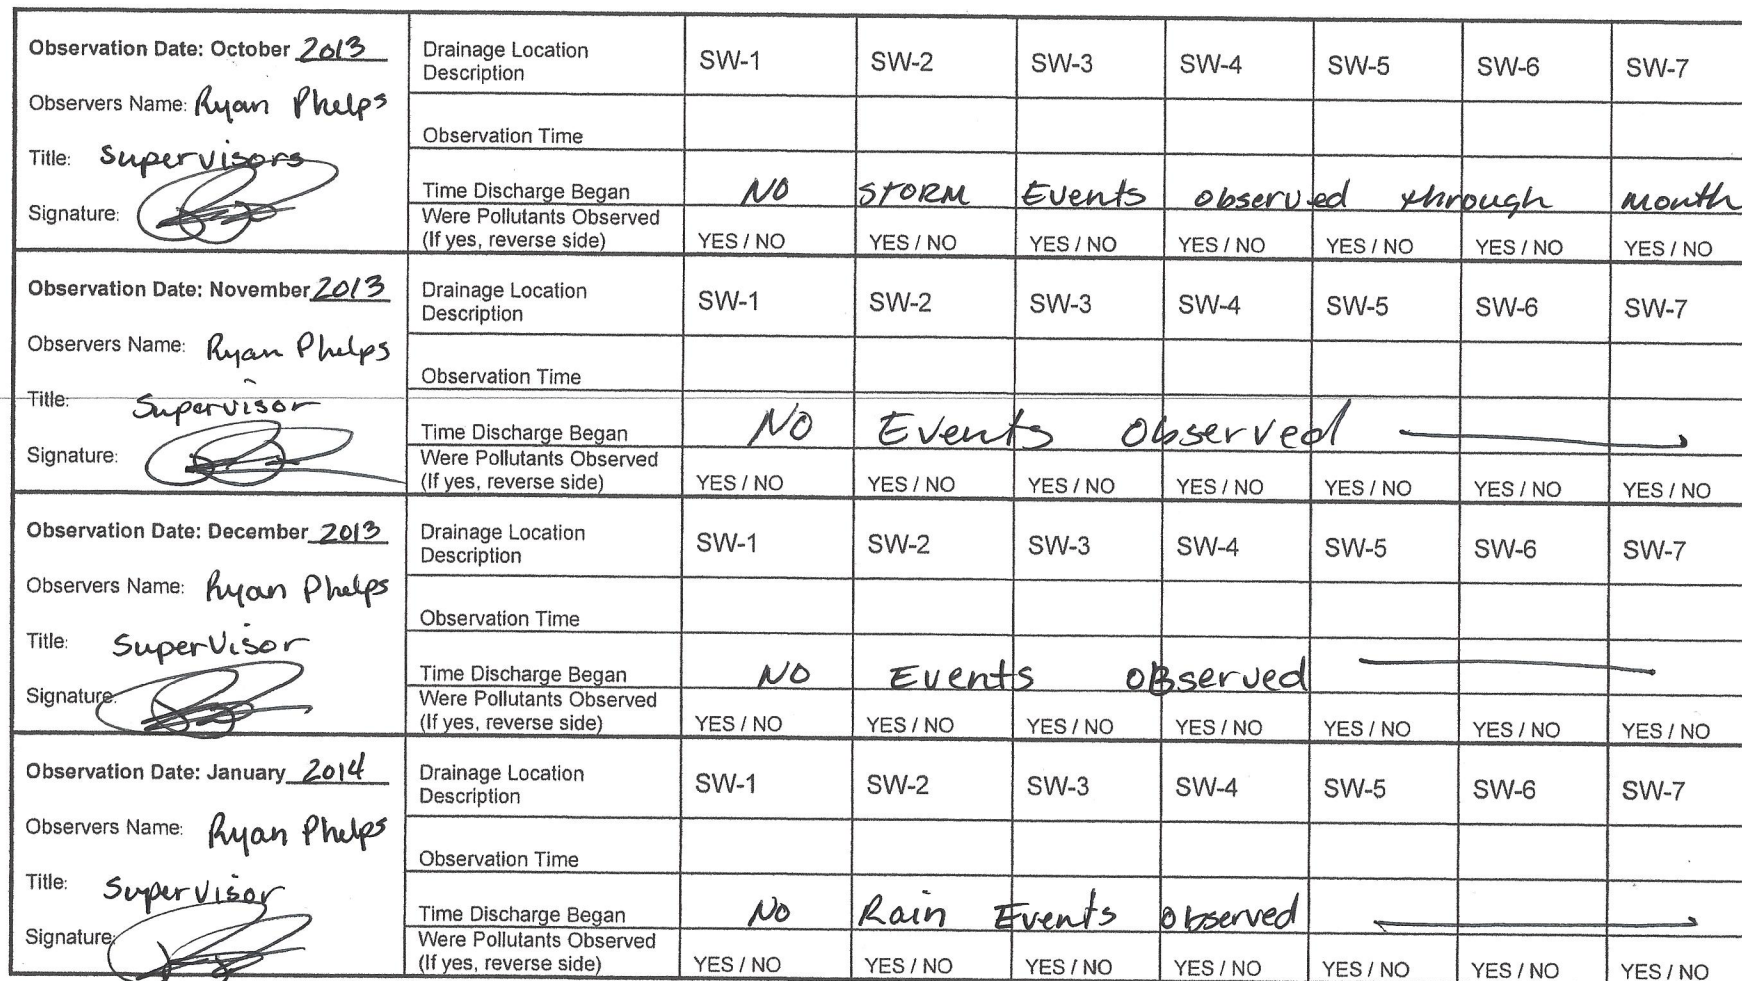 Observation Date: October 2013
Observers Name: Ryan Phelps
Title: Supervisors
Signature:
Drainage Location Description SW-1 SW-2 SW-3 SW-4 SW-5 SW-6 SW-7
Observation Time
Time Discharge Began NO STORM Events observed through month
Were Pollutants Observed
(If yes, reverse side) YES / NO YES / NO YES / NO YES / NO YES / NO YES / NO YES / NO
Observation Date: November 2013
Observers Name: Ryan Phelps
Title: Supervisor
Signature:
Drainage Location Description SW-1 SW-2 SW-3 SW-4 SW-5 SW-6 SW-7
Observation Time
Time Discharge Began NO Events Observed
Were Pollutants Observed
(If yes, reverse side) YES / NO YES / NO YES / NO YES / NO YES / NO YES / NO YES / NO
Observation Date: December 2013
Observers Name: Ryan Phelps
Title: Supervisor
Signature:
Drainage Location Description SW-1 SW-2 SW-3 SW-4 SW-5 SW-6 SW-7
Observation Time
Time Discharge Began NO Events OBserved
Were Pollutants Observed
(If yes, reverse side) YES / NO YES / NO YES / NO YES / NO YES / NO YES / NO YES / NO
Observation Date: January 2014
Observers Name: Ryan Phelps
Title: Supervisor
Signature:
Drainage Location Description SW-1 SW-2 SW-3 SW-4 SW-5 SW-6 SW-7
Observation Time
Time Discharge Began No Rain Events Observed
Were Pollutants Observed
(If yes, reverse side) YES / NO YES / NO YES / NO YES / NO YES / NO YES / NO YES / NO